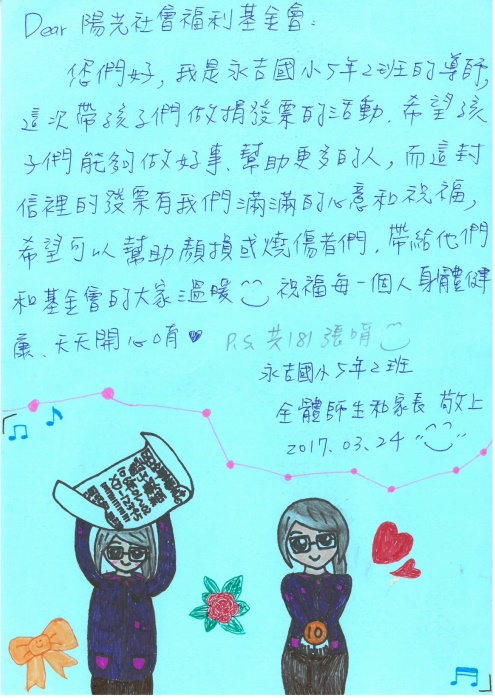 Dear 陽光社會福利基金會:
您們好,我是永吉國小5年2班的導師,
這次帶孩子們做捐發票的活動.希望孩
子們能夠做好事、幫助更多的人,而這封
信裡的發票有我們滿滿的心意和祝福,
希望可以幫助顏損或燒傷者們.帶給他們
和基金會的大家溫暖 祝福每一個人身體健
康、天天開心唷♥ P.S. 共181張唷
永吉國小5年2班
全體師生和家長 敬上
2017.03.24
10